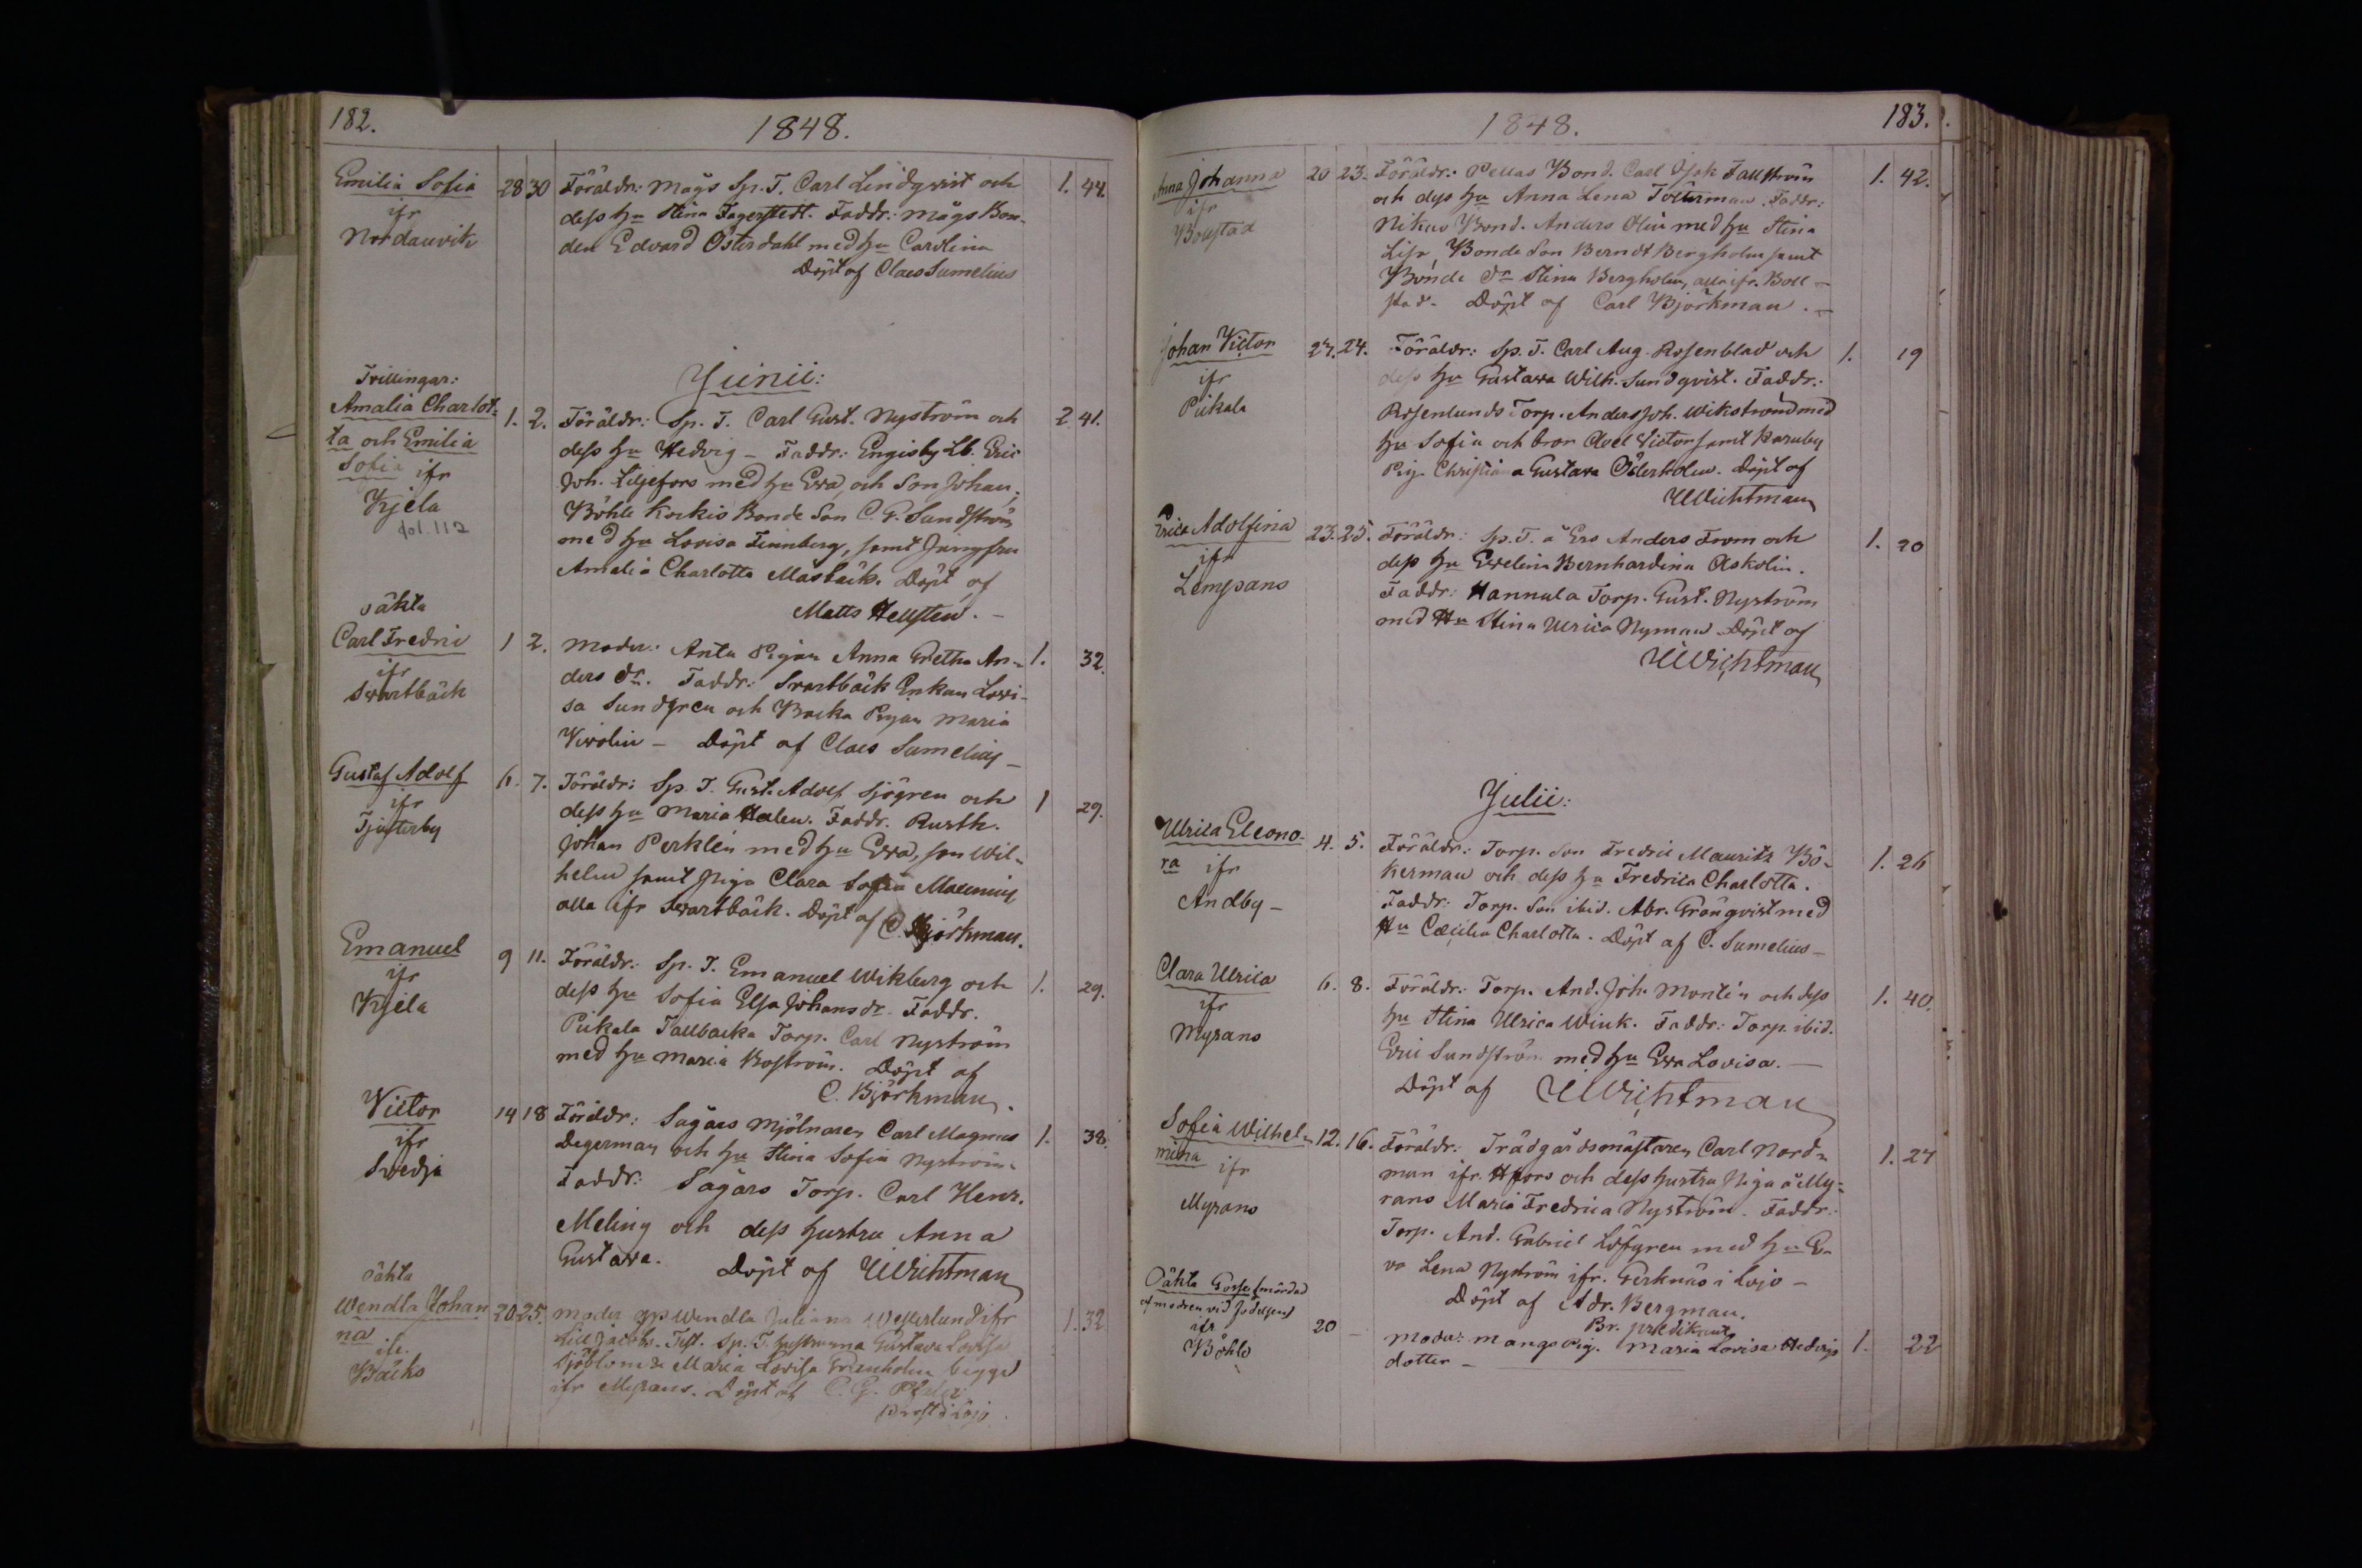 182.
1848.
Emilia Sofia 28 30 Föräldr: Mågs Sp. T. Carl Lindqvist och 1. 44.
ifr dess hu Stina Fagerstedt. Faddr: Mågs Bon-
Nordanvik den Edvard Österdahl med hu Carolina
Döpt af Claes Sumelius
Junii:
Tvillingar:
Amalia Charlot- 1. 2. Föräldr: Sp. T. Carl Gust. Nyström och 2 41.
ta och Emilia dess hu Hedvig – Faddr: Engisby Lb. Eric
Sofia ifr Joh. Liljefors med hu Eva, och Son Johan;
Kjela Böhle Korkis Bonde Son C. G. Sundström
fol. 112 med hu Lovisa Finnberg, samt Jungfru
Amalia Charlotta Masbäck. Döpt af
Matts Hellsten. –
oäkta
Carl Fredric 1 2. Moder: Antu Pigan Anna Gretha An- 1. 32.
ifr ders dr. Faddr: Svartbäck Enkan Lovi-
Svartbäck sa Sundgren och Backa Pigan Maria
Virolin – Döpt af Claes Sumelius –
Gustaf Adolf 6. 7. Föräldr: Sp. T. Gust. Adolf Sjögren och 1 29.
ifr dess hu Maria Halen. Faddr. Rusth.
Tjusterby Johan Perklén med hu Eva, son Wil-
helm samt Piga Clara Sofia
alla ifr Svartbäck. Döpt af C. Björkman.
Emanuel 9 11. Föräldr: Sp. T. Emanuel Wikberg och 1. 29.
ifr dess hu Sofia Elsa Johansdr. Faddr.
Kjela Pickala Tallbacka Torp. Carl Nyström
med hu Maria Boström. Döpt af
C. Björkman.
Victor 14 18 Föräldr: Sågars Mjölnaren Carl Magnus 1. 38.
ifr Degerman och hu Stina Sofia Nyström.
Svedja Faddr: Sågars Torp. Carl Henr.
Meling och dess hustru Anna
Gustava. Döpt af UWichtman
oäkta
Wendla Johan 20 25. Moder Wendla Juliana Westerlund ifr 1. 32
na Sp. T. hustruna Gustava Lovisa
ifr Sjöblom & Maria Lovisa Granholm begge
Bäcks ifr Myrans. Döpt af C. G.
Prost i Lojo.
183.
1848.
Anna Johanna 20 23. Föräldr: Pellas Bond. Carl Isak Fallström 1. 42.
ifr och dess hu Anna Lena Tolterman. Faddr:
Bollstad Nikus Bond. Anders Olin med hu Stina
Lisa, Bonde Son Berndt Bergholm samt
Bonde dr Stina Bergholm, alla ifr. Boll-
stad. Döpt af Carl Björkman. –
Johan Victor 23. 24. Föräldr: Sp. T. Carl Aug. Rosenblad och 1. 19
ifr dess hu Gustava Wilh. Sundqvist. Faddr:
Pickala Rosenlunds Torp. Anders Joh. Wikström med
hu Sofia och bror Axel Victor samt Karuby
Pig. Christiana Gustava Österholm. Döpt af
UWichtman
Erica Adolfina 23. 25. Föräldr: Sp. T. å Ers Anders From och 1. 20
ifr dess hu Evelina Bernhardina Askolin.
Lempans Faddr: Hannula Torp. Gust. Nyström
med Hu Stina Ulrica Nyman. Döpt af
UWichtman
Julii:
Ulrica Eleono- 4. 5. Föräldr: Torp. Son Fredric Mauritz Bö- 1. 26
ra ifr kerman och dess hu Fredrica Charlotta.
Andby – Faddr: Torp. Son ibid. Abr. Grönqvist med
Hu Cæcilia Charlotta. Döpt af C. Sumelius –
Clara Ulrica 6. 8. Föräldr: Torp. And. Joh. Montin och dess 1. 40.
ifr hu Stina Ulrica Wink. Faddr: Torp. ibid.
Myrans Eric Sundström med hu Eva Lovisa. –
Döpt af UWichtman
Sofia Wilhel- 12. 16. Föräldr: Trädgårdsmästaren Carl Nord- 1. 27
mina ifr man ifr. Hfors och dess hustru Piga å My-
Myrans rans Maria Fredrica Nyström. Faddr:
Torp. And. Gabriel Löfgren med hu E-
va Lena Nyström ifr. Gerknäs i Lojo –
Döpt af Adr. Bergman.
Br. predikant
Oäkta Gosse (mördad
af modren vid födelsen)
ifr 20 – Moder: Mangs Pig. Maria Lovisa Hedvigs 1. 22
Böhle dotter –